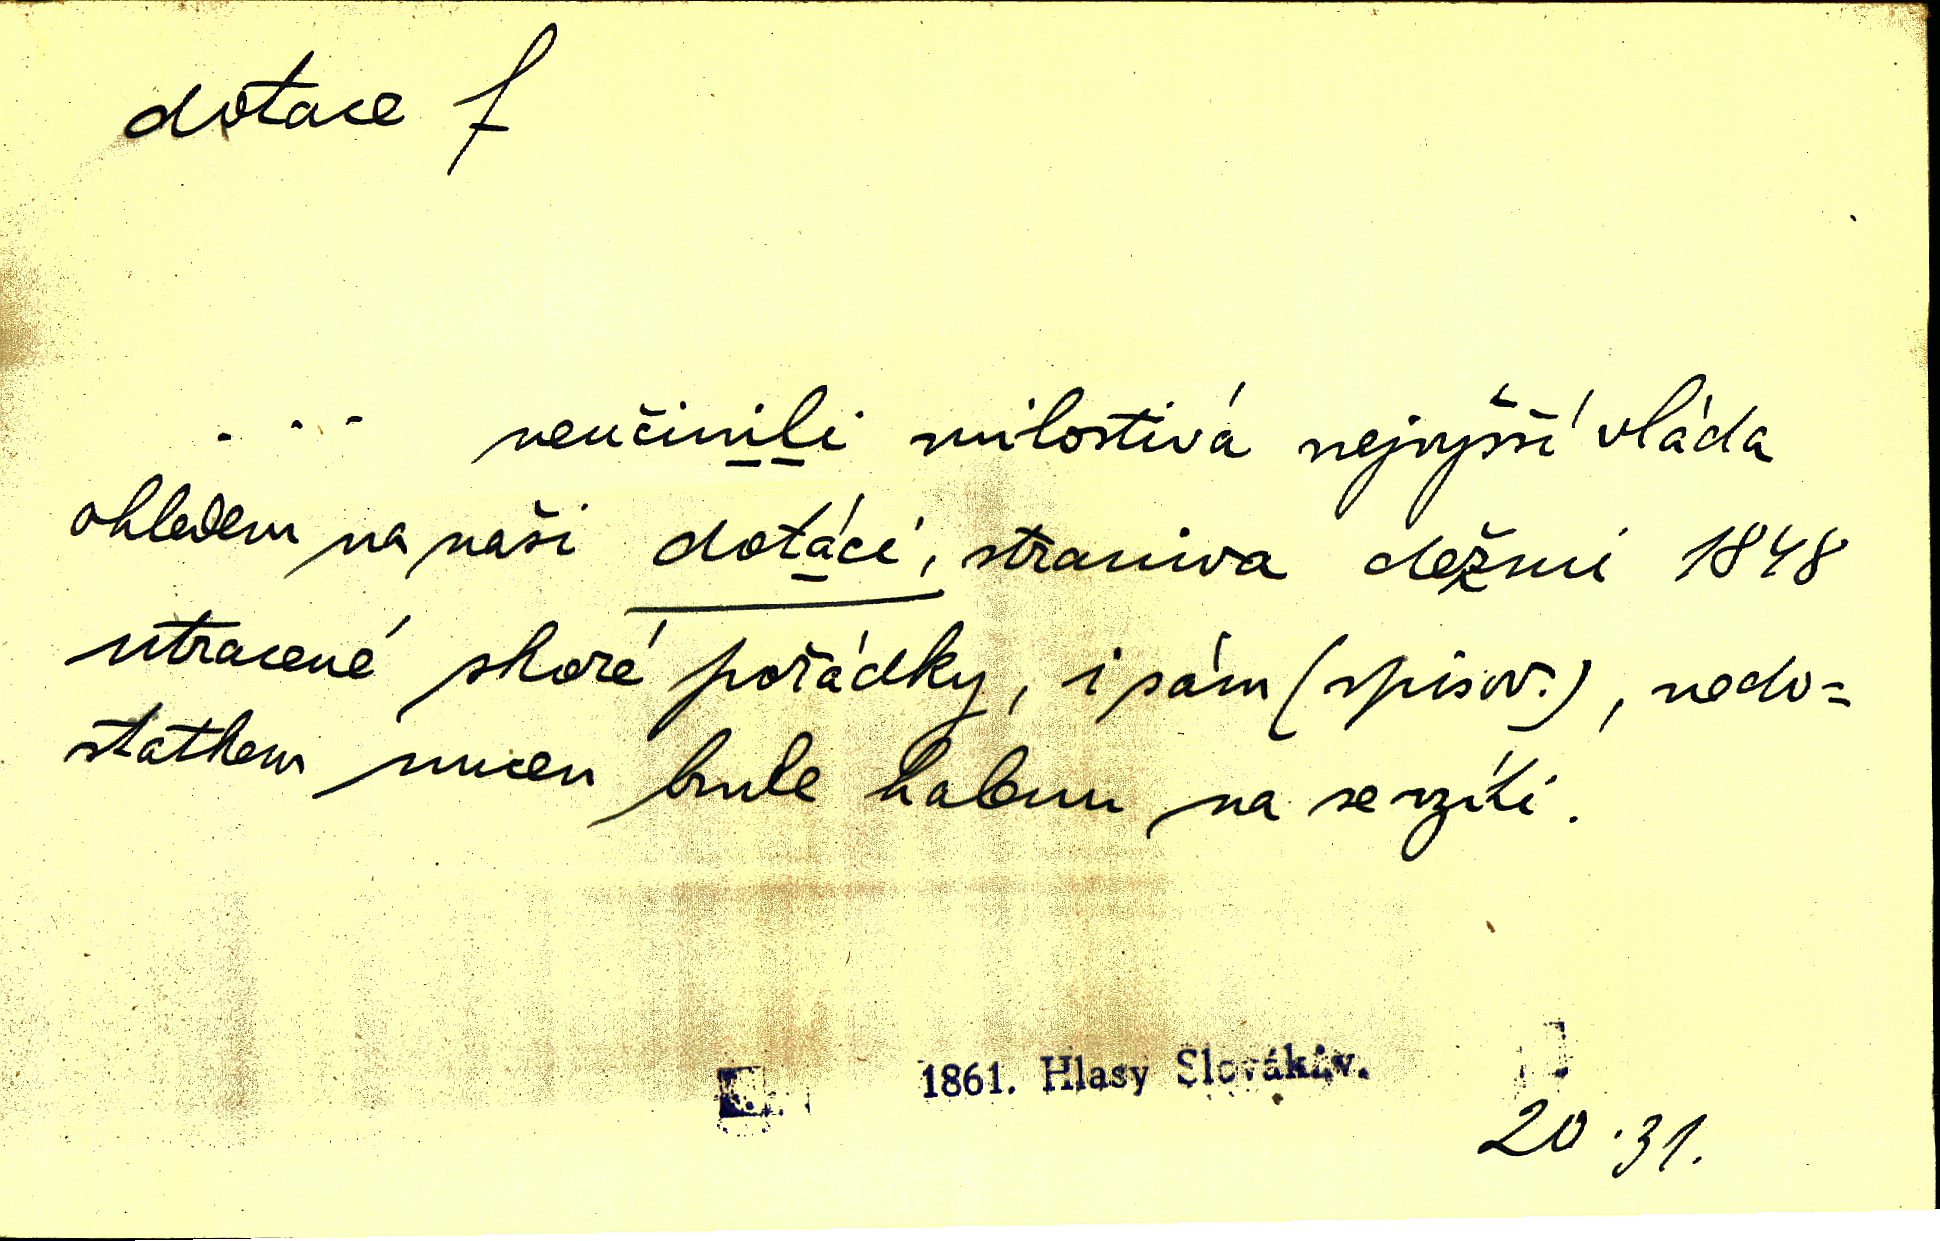 dotace f
. . . neučinili milostivá nejvyšší vláda
ohledem na naši dotácí, straniva dežmi 1848
utracené skoré pořádky, i sám (spisov.), nedo=
statkem nucen bude halenu na se vzíti.
1861. Hlasy Slováků v.
20.31.